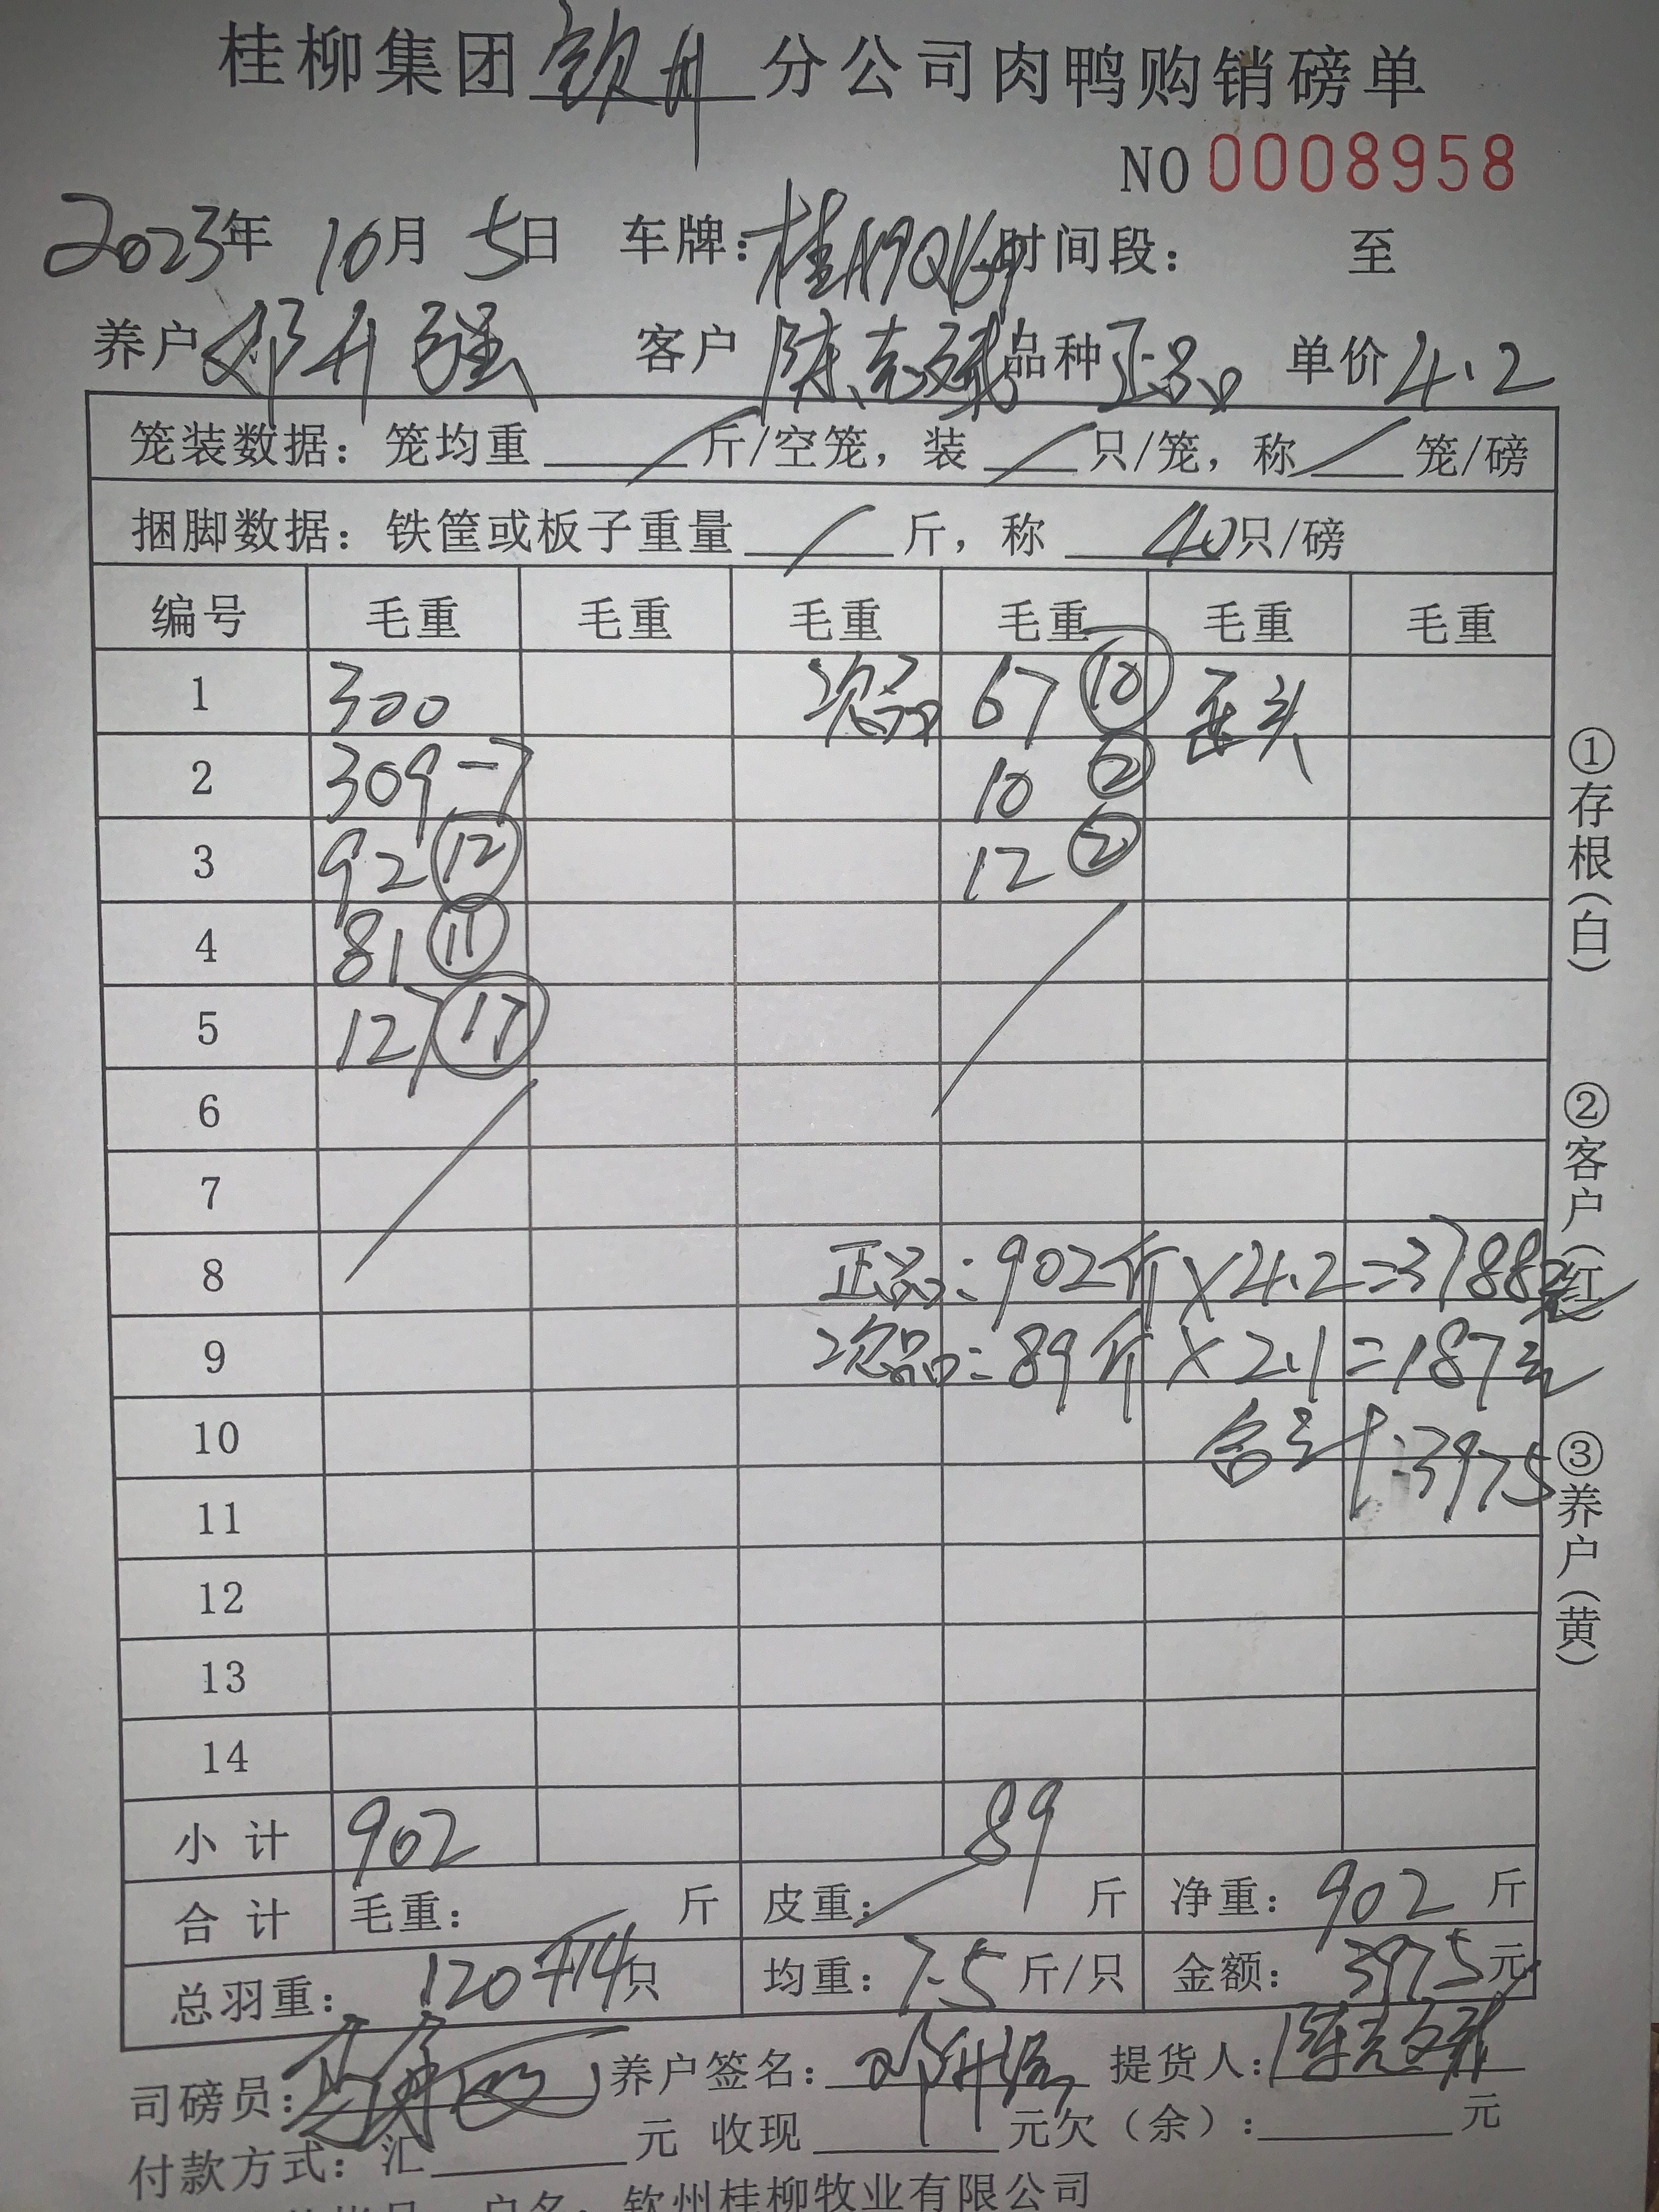 桂柳集团 钦州 分公司肉鸭购销磅单
NO 0008958
2023年 10月 5日 车牌: 时间段: 至
养户 邓升强 客户 陈克斌 品种 正品 单价 4.2
笼装数据: 笼均重 / 斤/空笼, 装 / 只/笼, 称 / 笼/磅
捆脚数据: 铁筐或板子重量 / 斤, 称 40 只/磅
编号 毛重 毛重 毛重 毛重 毛重 毛重
1 300 次品 67 ⑩ 歪头
2 309-7 10 ②
3 92 ⑫ 12 ②
4 81 ⑪
5 127 ⑰
6
7
8 正品:902斤×4.2=3788元
9 次品:89斤×2.1=187元
10 合计:3975
11
12
13
14
小计 902 89
合计 毛重: 斤 皮重: / 斤 净重: 902 斤
总羽重: 120+14只 均重: 7.5 斤/只 金额: 3975元
司磅员: 养户签名: 邓升强 提货人: 陈克斌
付款方式: 汇 元 收现 元欠(余): 元
户名: 钦州桂柳牧业有限公司
①存根(白)
②客户(红)
③养户(黄)